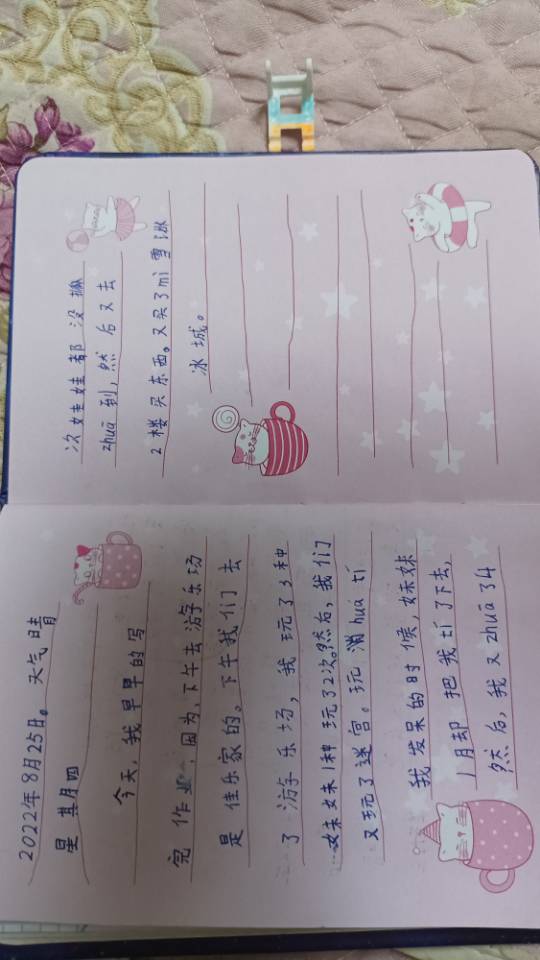 2022年8月25日。天气晴
星期四
今天，我早早的写
完作业，因为，下午去游乐场
是佳乐家的。下午我们去
了游乐场，我玩了3种
妹妹1种玩了2次。然后，我们
又玩了迷宫。玩滑huá tī
我发呆的时候，妹妹
1月却把我tī了下去，
然后，我又zhuā了4
次娃娃都没
zhuā到，然后又去
2楼买东西。又买了mì雪冰
冰城。